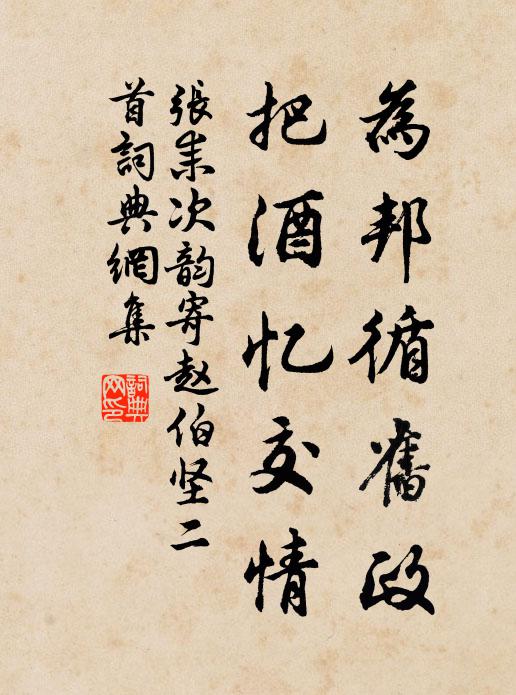 為邦循舊政
把酒忆交情
張耒次韵寄赵伯坚二
首詞典網集
詞典
网印